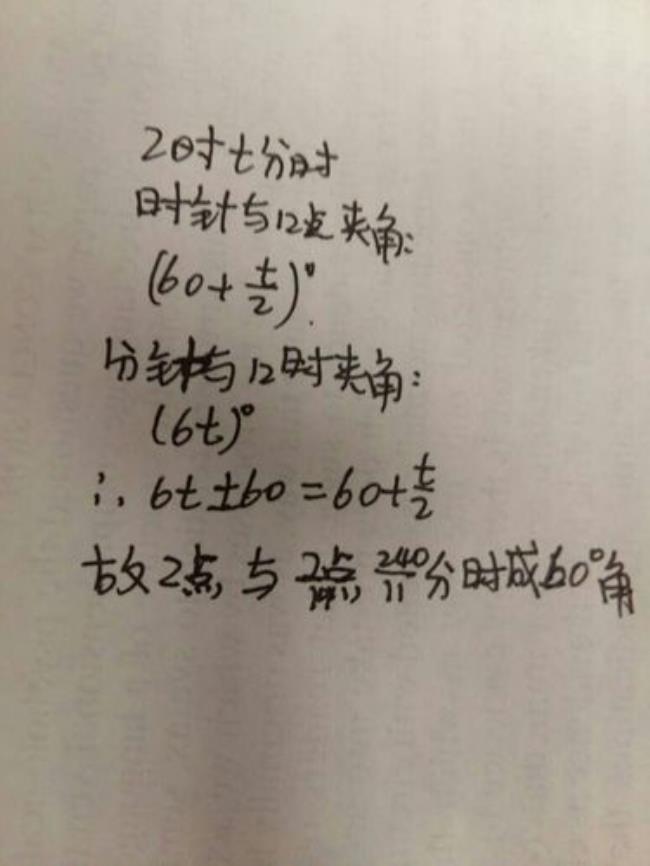 2时t分时
时针与12点夹角:
(60+t/2)°.
分针与12时夹角:
(6t)°
∴ 6t±60=60+t/2
故2点,与2点240/11分时成60°角